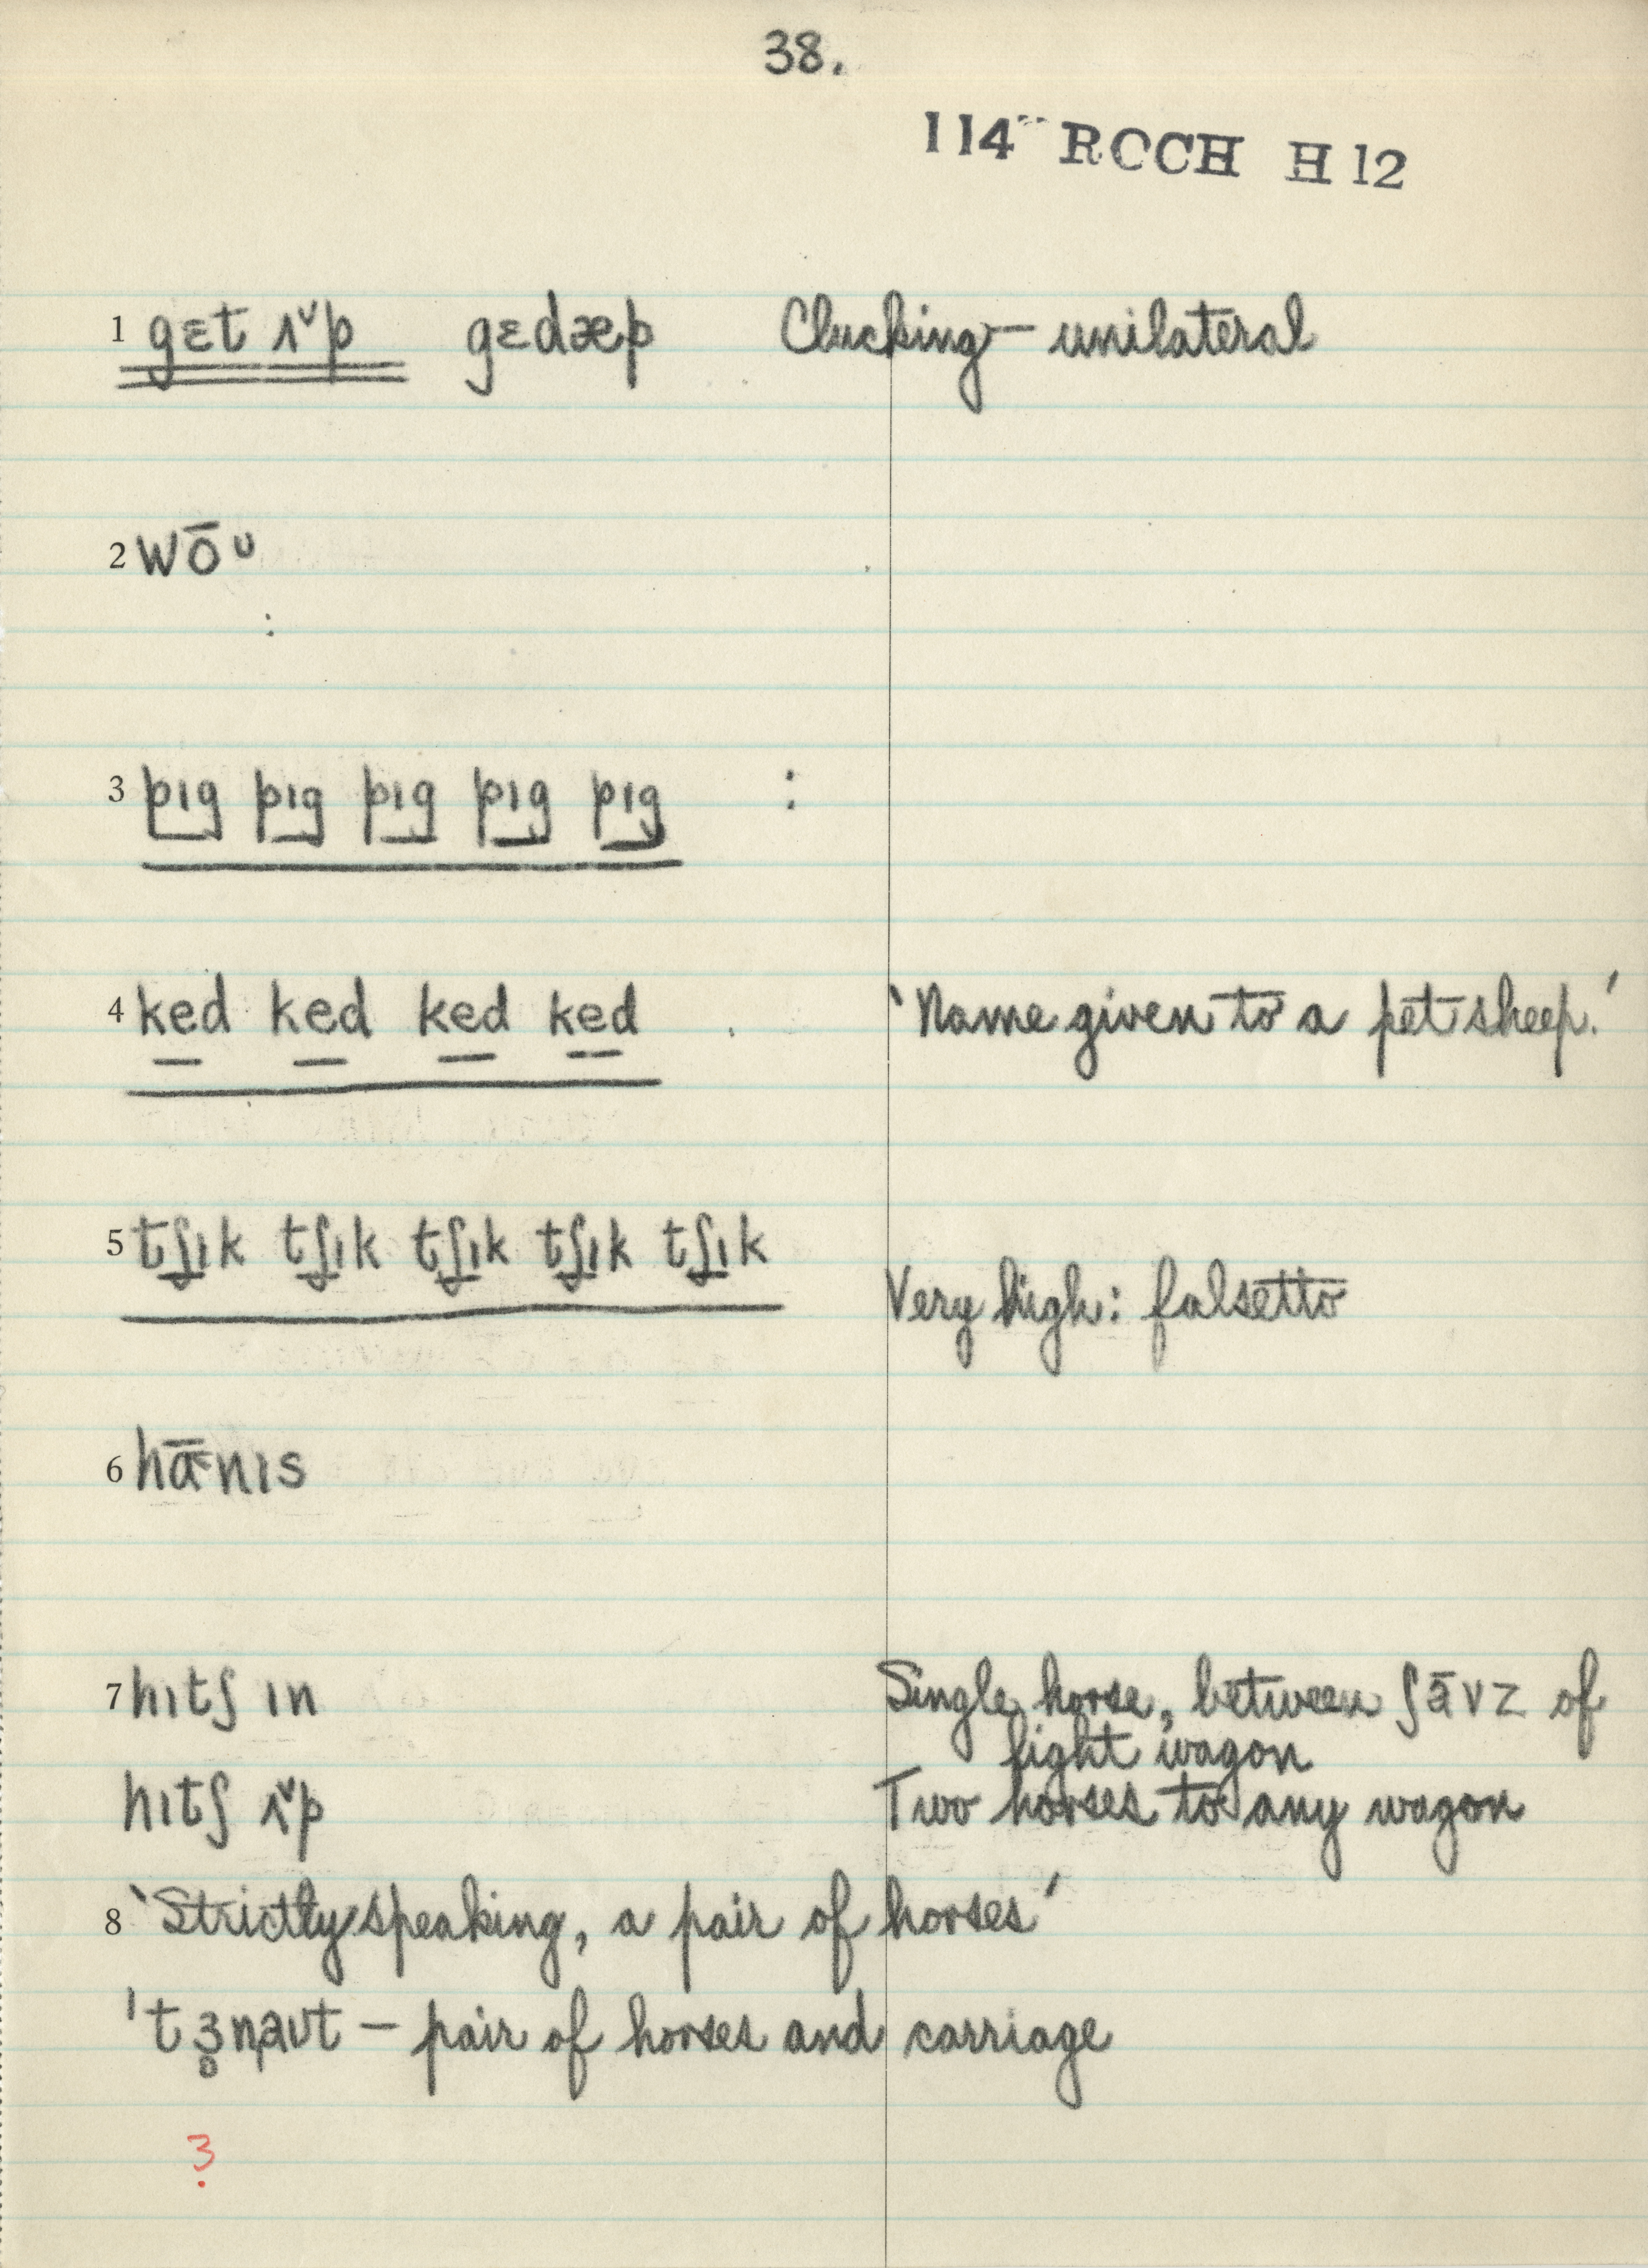 38.
114 ROCH H 12
1 gɛt ʌ˅p gɛdæp Clucking — unilateral
2 wōᴜ
:
3 pɪg pɪg pɪg pɪg pɪg :
4 ked ked ked ked . 'Name given to a pet sheep.'
5 tʃɪk tʃɪk tʃɪk tʃɪk tʃɪk
Very high: falsetto
6 hɑ̄nɪs
7 hɪtʃ ɪn Single horse, between ʃāvz of
light wagon
hɪtʃ ʌ˅p Two horses to any wagon
8 'Strictly speaking, a pair of horses'
ˈtɜ̥naᴜt — pair of horses and carriage